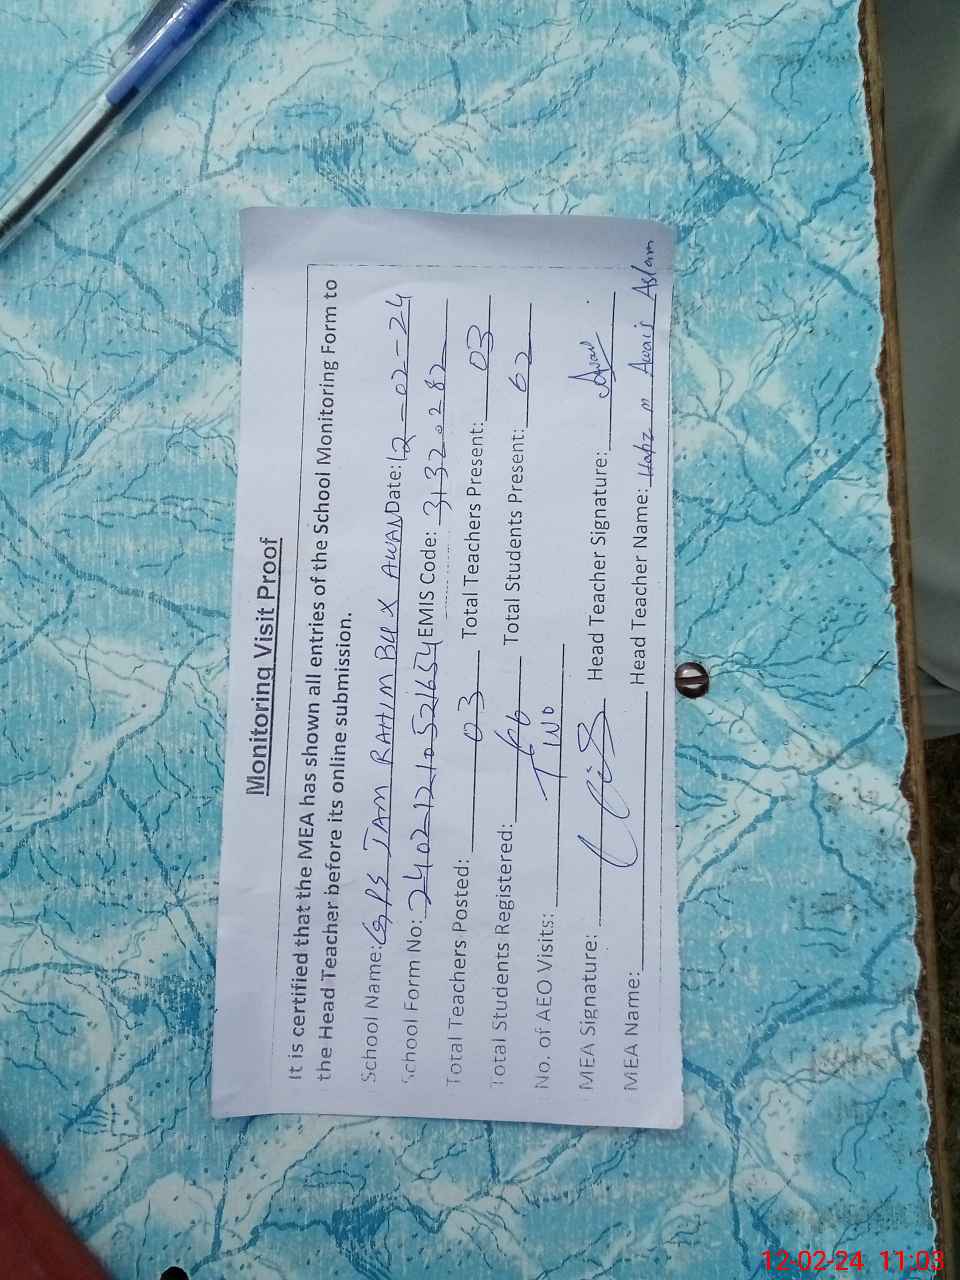 Monitoring Visit Proof
It is certified that the MEA has shown all entries of the School Monitoring Form to
the Head Teacher before its online submission.
School Name: GPS JAM RAHIM BUX AWAN Date: 12-02-24
School Form No: 2402121052654 EMIS Code: 31320282
Total Teachers Posted: 03 Total Teachers Present: 03
Total Students Registered: 66 Total Students Present: 62
No. of AEO Visits:
MEA Signature: Head Teacher Signature:
MEA Name: Head Teacher Name: Hafiz M Awais Aslam
12-02-24 11:03